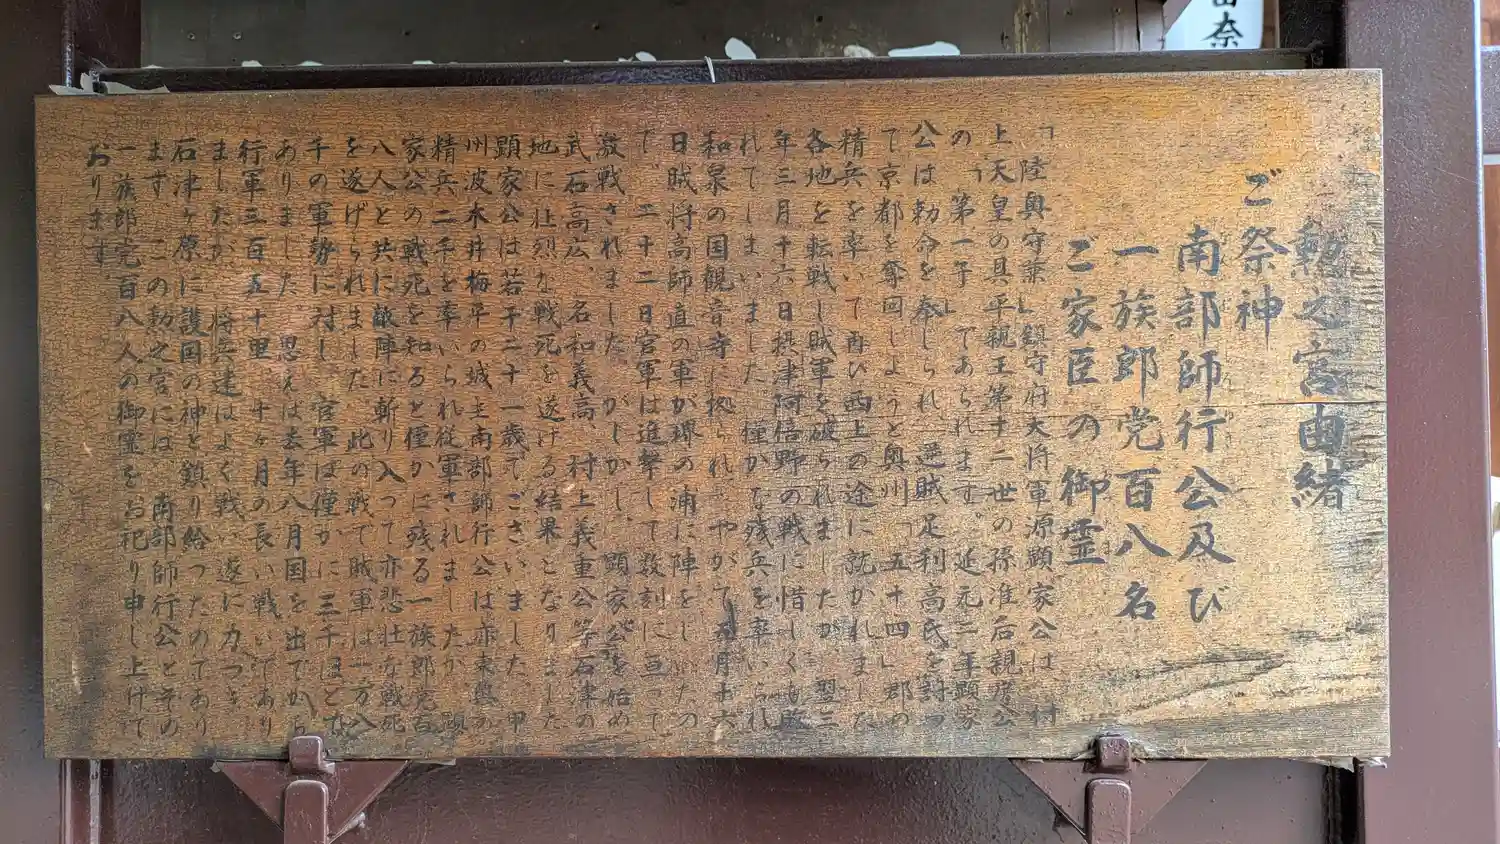 勲之宮由緒
ご祭神
南部師行公及び
一族郎党百八名
ご家臣の御霊
「陸奥守兼」鎮守府大将軍源顕家公は、村
上天皇の具平親王第十二世の孫准后親房公
の「第一子」であられます。延元二年顕家
公は勅命を奉じられ、逆賊足利高氏を討つ
て京都を奪回しようと奥州「五十四」郡の
精兵を率いて再び西上の途に就かれました
各地を転戦し賊軍を破られましたが、翌三
年三月十六日摂津阿倍野の戦に惜しくも敗
れてしまいました。僅かな残兵を率いられ
和泉の国観音寺に拠られ、やがて五月十六
日賊将高師直の軍が堺の浦に陣をしいたの
で。二十二日官軍は進撃して数刻に亘って
激戦されました。がしかし、顕家公を始め
武石高広、名和義高、村上義重公等石津の
地に壮烈な戦死を遂げる結果となりました
顕家公は若干二十一歳でございました。甲
州波木井梅平の城主南部師行公は亦末島の
精兵二千を率いられ従軍されましたが、顕
家公の戦死を知ると僅かに残る一族郎党百
八人と共に敵陣に斬り入って亦悲壮な戦死
を遂げられました。此の戦で賊軍は一万八
千の軍勢に対し、官軍は僅かに三千ほどで
ありました。思えば去年八月国を出でから
行軍三百五十里、十ヶ月の長い戦いであり
ましたが、将兵達はよく戦い遂に力つき
石津ヶ原に護国の神と鎮り給つたのであり
ます。この勲之宮には、南部師行公とその
一族郎党百八人の御霊をお祀り申し上げて
おります。
奈